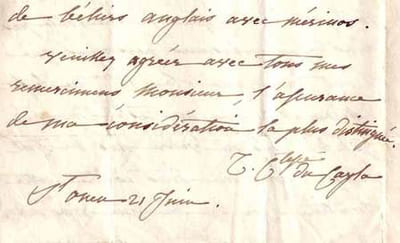 de béliers anglais avec mérinos.
veuillez agréer avec tous mes
remercimens Monsieur, l'assurance
de ma considération la plus distinguée.
C. Ctesse du Cayla
St Ouen 21 Juin.